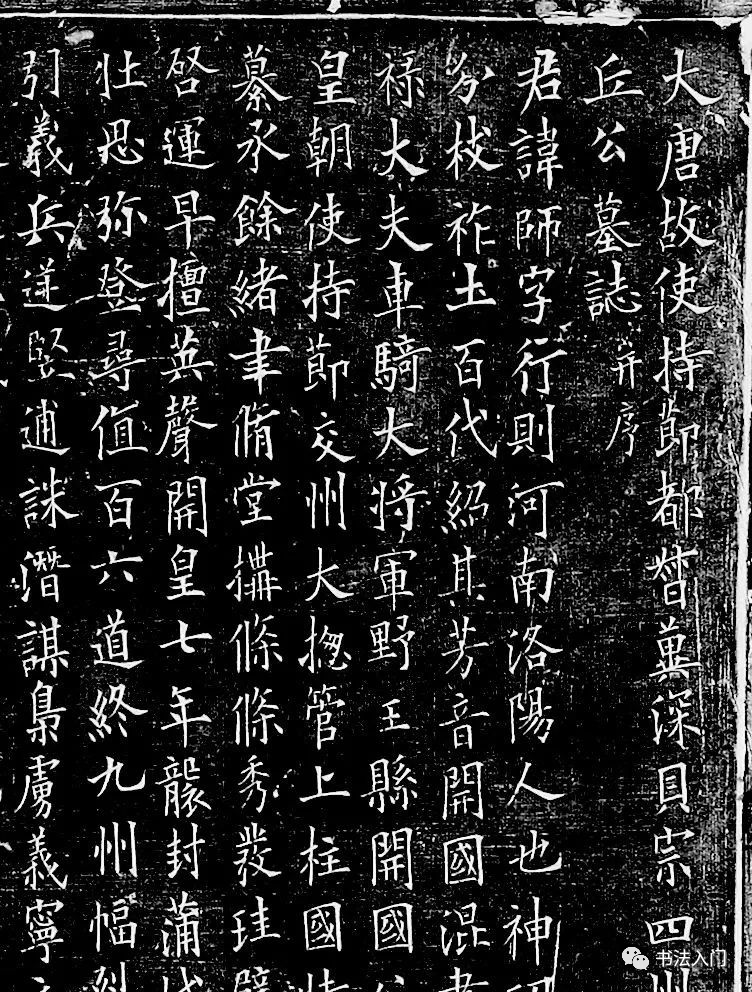 大唐故使持節都督冀深貝宗四州
丘公墓誌并序
君諱師字行則河南洛陽人也神
分枝祚土百代紹其芳音開國混
祿大夫車騎大将軍野王縣開國公
皇朝使持節交州大揔管上柱國
纂承餘緒聿脩堂構條條秀發珪璧
啓運早擅英聲開皇七年襲封蒲城
壮思弥登尋值百六道終九州幅裂
引義兵逆竪逋誅潛謀梟虜義寧
书法入门